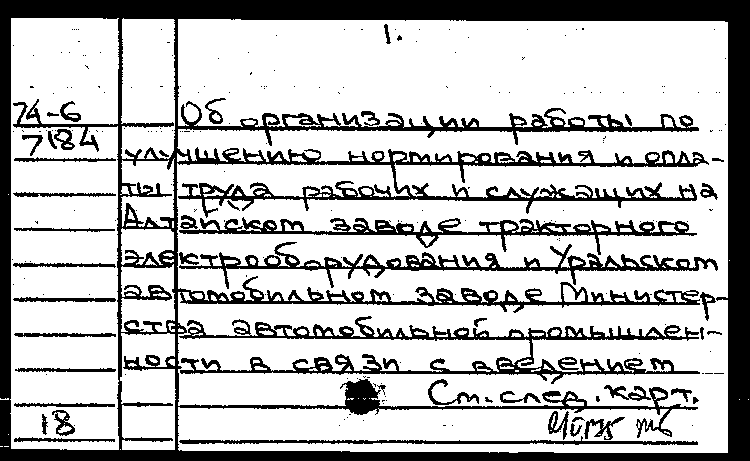 1.
74-6
7184
Об организации работы по
улучшению нормирования и опла-
ты труда рабочих и служащих на
Алтайском заводе тракторного
электрооборудования и Уральском
автомобильном заводе Министер-
ства автомобильной промышлен-
ности в связи с введением
См. след. карт.
18